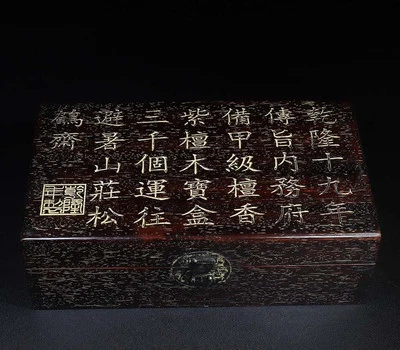 乾隆十九年
傳旨內務府
備甲級檀香
紫檀木寶盒
三千個運往
避暑山莊松
鶴齋
乾隆年製